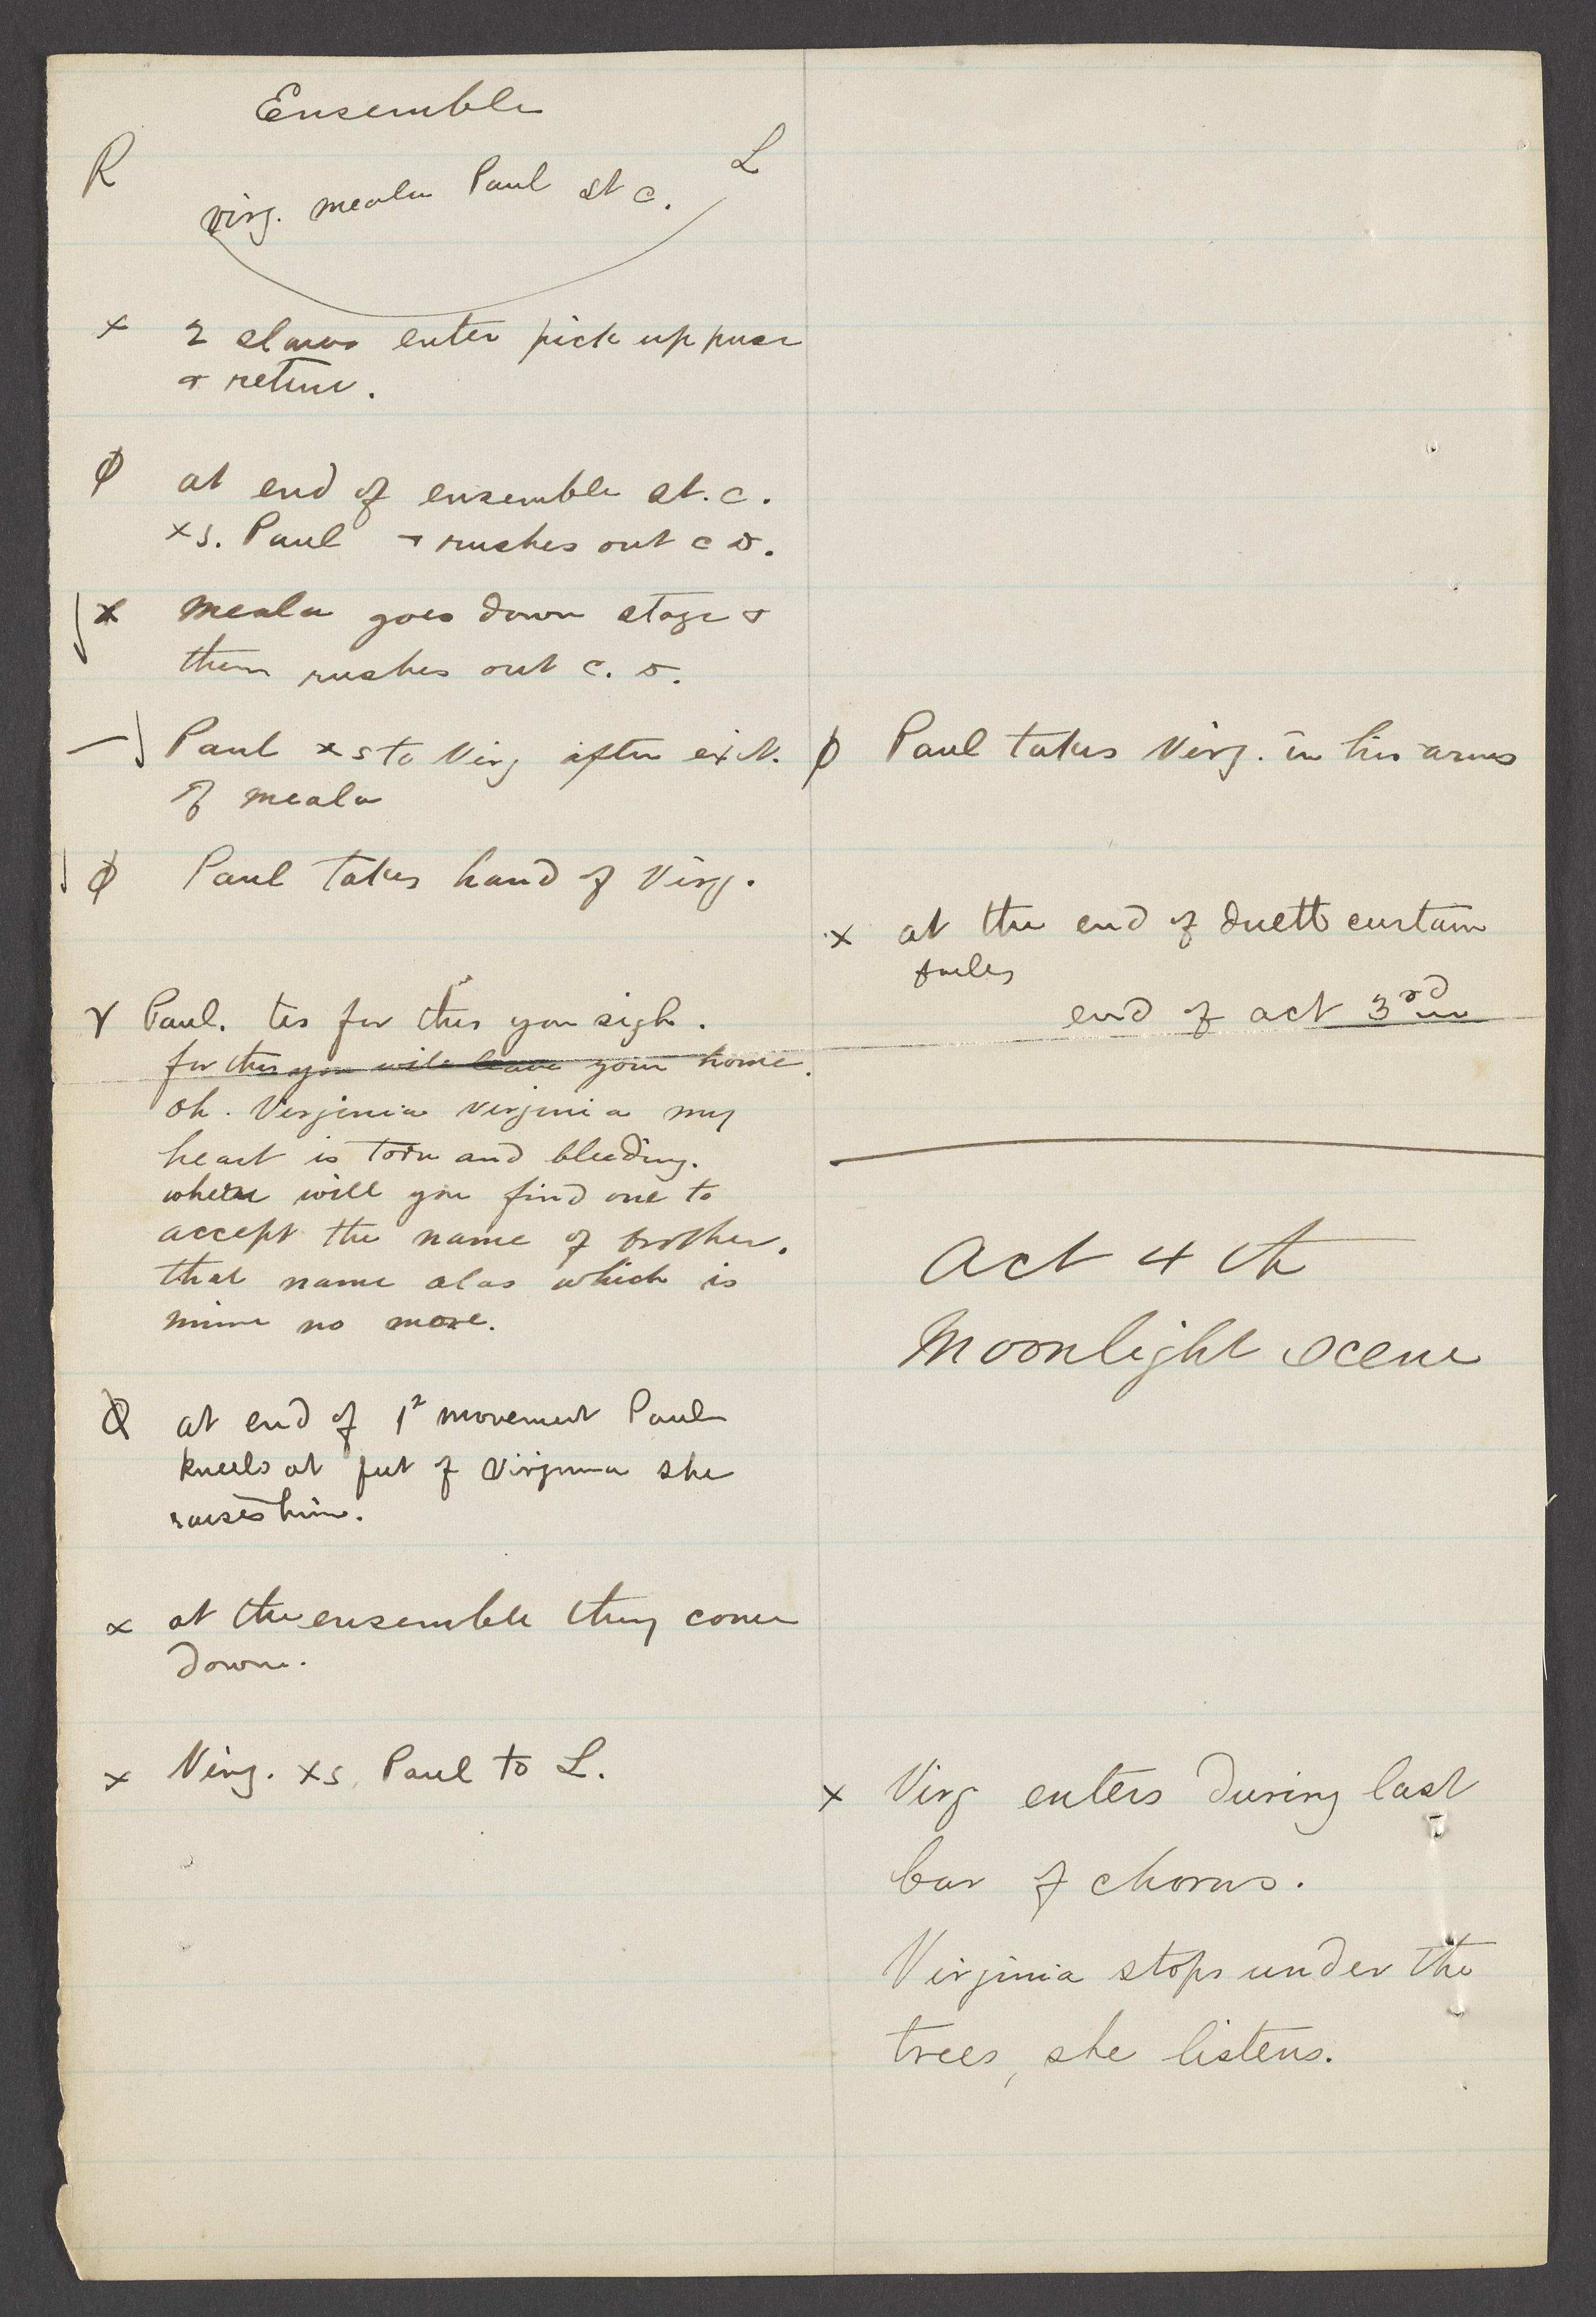 Ensemble
R
L
Virg. Meala Paul St C.
x 2 slaves enter pick up purse
+ retire.
φ at end of ensemble St. C.
xs. Paul + rushes out c D.
x Meala goes down stage +
then rushes out C. D.
Paul xs to Virg after exit.
of Meala
φ Paul takes hand of Virg.
x Paul. tis for this you sigh.
for this you will leave your home.
oh. Virginia Virginia my
heart is torn and bleeding.
where will you find one to
accept the name of brother.
that name alas which is
mine no more.
φ at end of 1st movement Paul
kneels at feet of Virginia she
raises him.
x at the ensemble they come
down.
x Virg. xs. Paul to L.
φ Paul takes Virg. in his arms
x at the end of duett curtain
falls
end of act 3rd
Act 4th
Moonlight scene
x Virg enters during last
bar of chorus.
Virginia stops under the
trees, she listens.